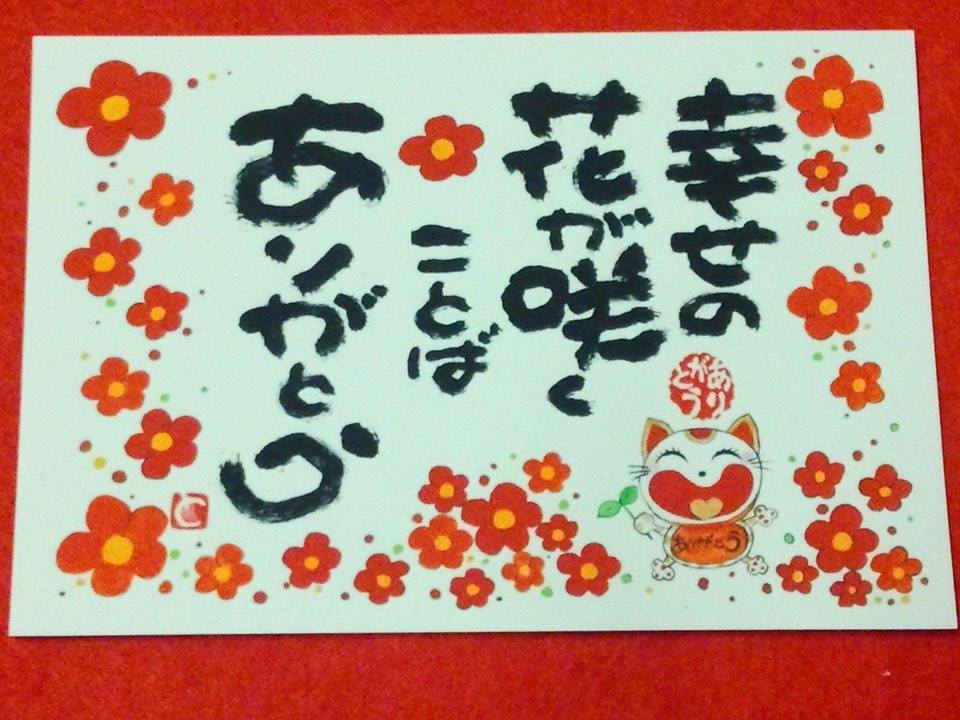 幸せの
花が咲く
ことば
ありがとう
ありがとう
ありがとう
と